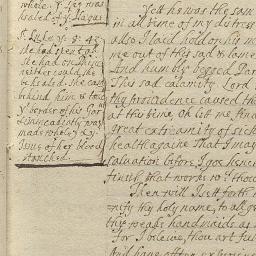 whole. & they was
healed of ye Plague
St. Luke ye 8: 43
she had spent al
she had on Phisic
neither could she
be healed. She came
behind him & touc
ye border of his Gar
& immediatly was
made whole & ye
Issue of her blood
stanched.
Yett he was the sam
in all time of my distress
also I laid hold on his m
me out of this sad & lame
And humbly begged Par
This sad calamity Lord
thy providence caused th
at this time, oh let me find
great extremity of sick
health againe that I may
saluation before I goe hence
finish that worke wch thou
Then will I sett forth
nify thy holy name, to all ge
thy weake handmaids as
for I beleive, thou art full
And have often experienc